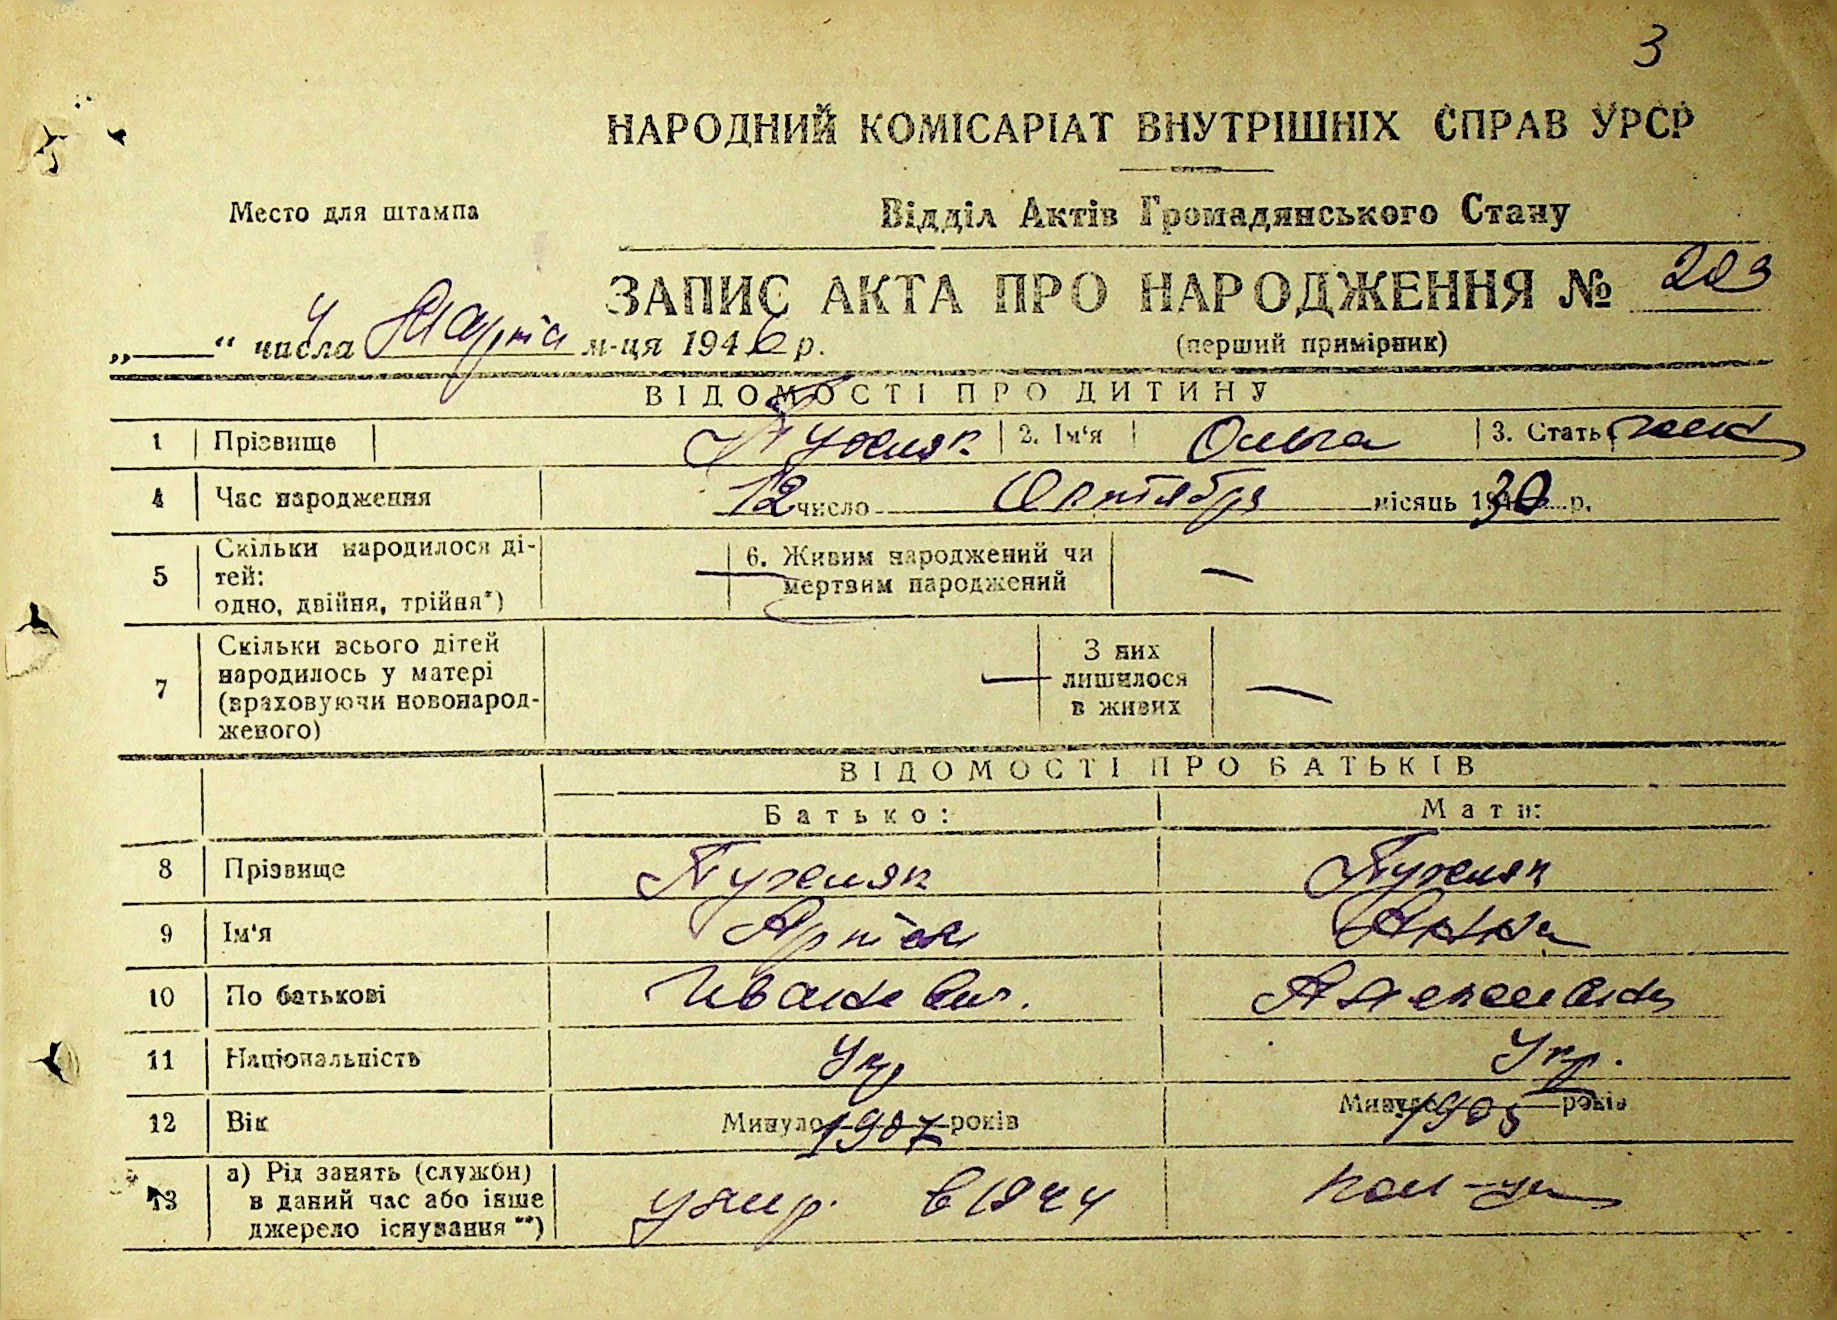 3
НАРОДНИЙ КОМІСАРІАТ ВНУТРІШНІХ СПРАВ УРСР
Место для штампа
Відділ Актів Громадянського Стану
ЗАПИС АКТА ПРО НАРОДЖЕННЯ № 203
„ 4 “ числа Марта м-ця 1946 р.
(перший примірник)
ВІДОМОСТІ ПРО ДИТИНУ
1 Прізвище Пужляк 2. Ім'я Ольга 3. Стать жен
4 Час народження 12 число Октября місяць 1930 р.
5 Скільки народилося ді-
тей:
одно, двійня, трійня*) —
6. Живим народжений чи
мертвим народжений —
7 Скільки всього дітей
народилось у матері
(враховуючи новонарод-
женого) —
З них
лишилося
в живих —
ВІДОМОСТІ ПРО БАТЬКІВ
Батько: Мати:
8 Прізвище Пужляк Пужляк
9 Ім'я Артем Анна
10 По батькові Иванович.
11 Національність Укр Укр.
12 Вік Минуло 1907 років Минуло 1905 років
13 а) Рід занять (служби)
в даний час або інше
джерело існування **) умер. в 1944 кол-ца